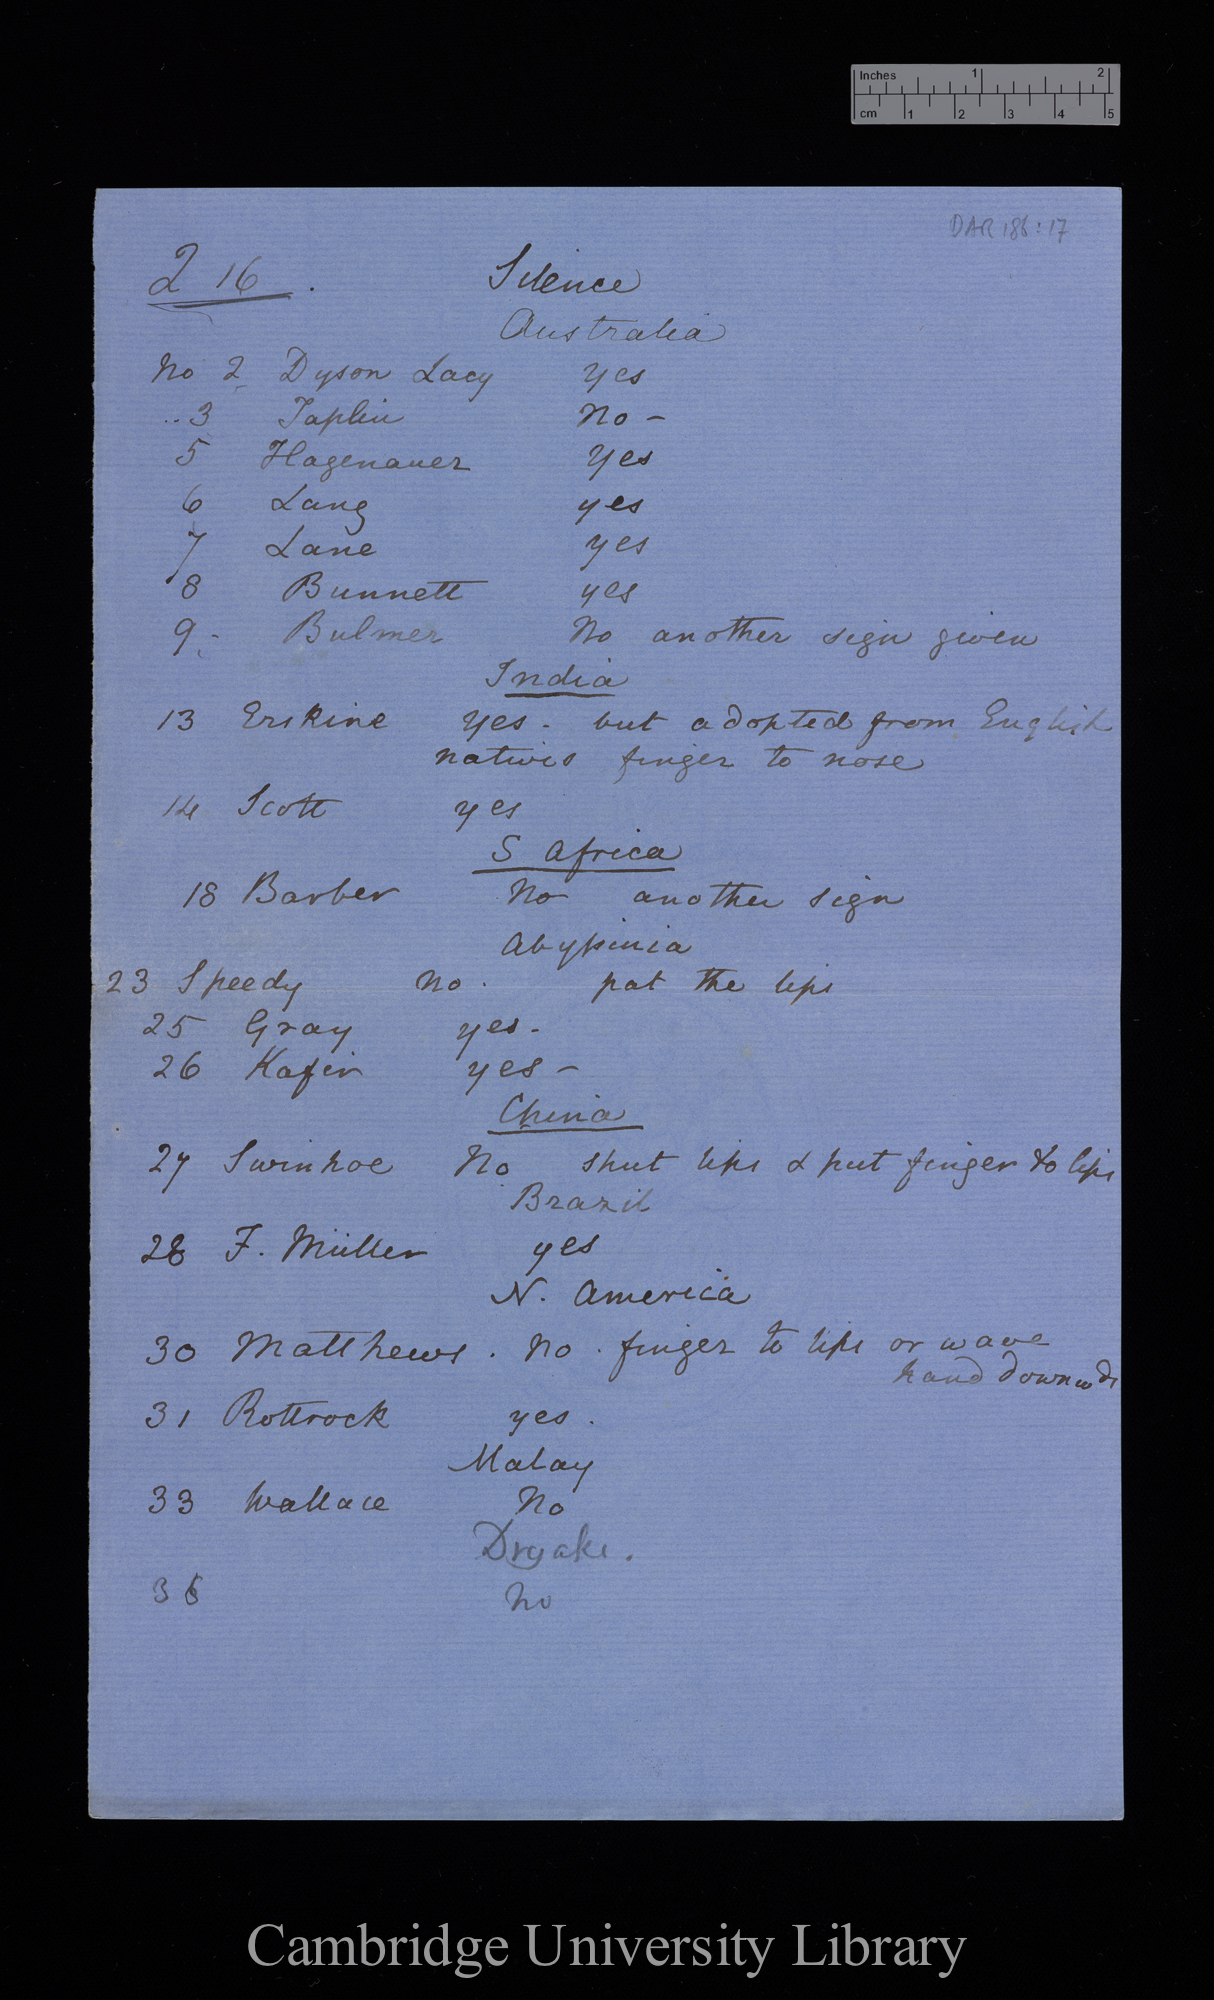 Inches 1 2
cm 1 2 3 4 5
DAR 186:17
Q 16. Silence
Australia
No 2 Dyson Lacy yes
..3 Taplin No -
5 Hagenauer Yes
6 Lang yes
7 Lane yes
8 Bunnett yes
9 - Bulmer No another sign given
India
13 Erskine Yes - but adopted from English
natives finger to nose
14 Scott yes
S Africa
18 Barber No another sign
Abyssinia
23 Speedy no. pat the lips
25 Gray yes -
26 Kafir yes -
China
27 Swinhoe No shut lips & put finger to lips
Brazil
28 F. Müller yes
N. America
30 Matthews. No. finger to lips or wave
hand downwds
31 Rottrock yes.
Malay
33 Wallace No
Dryaks.
36 No
Cambridge University Library